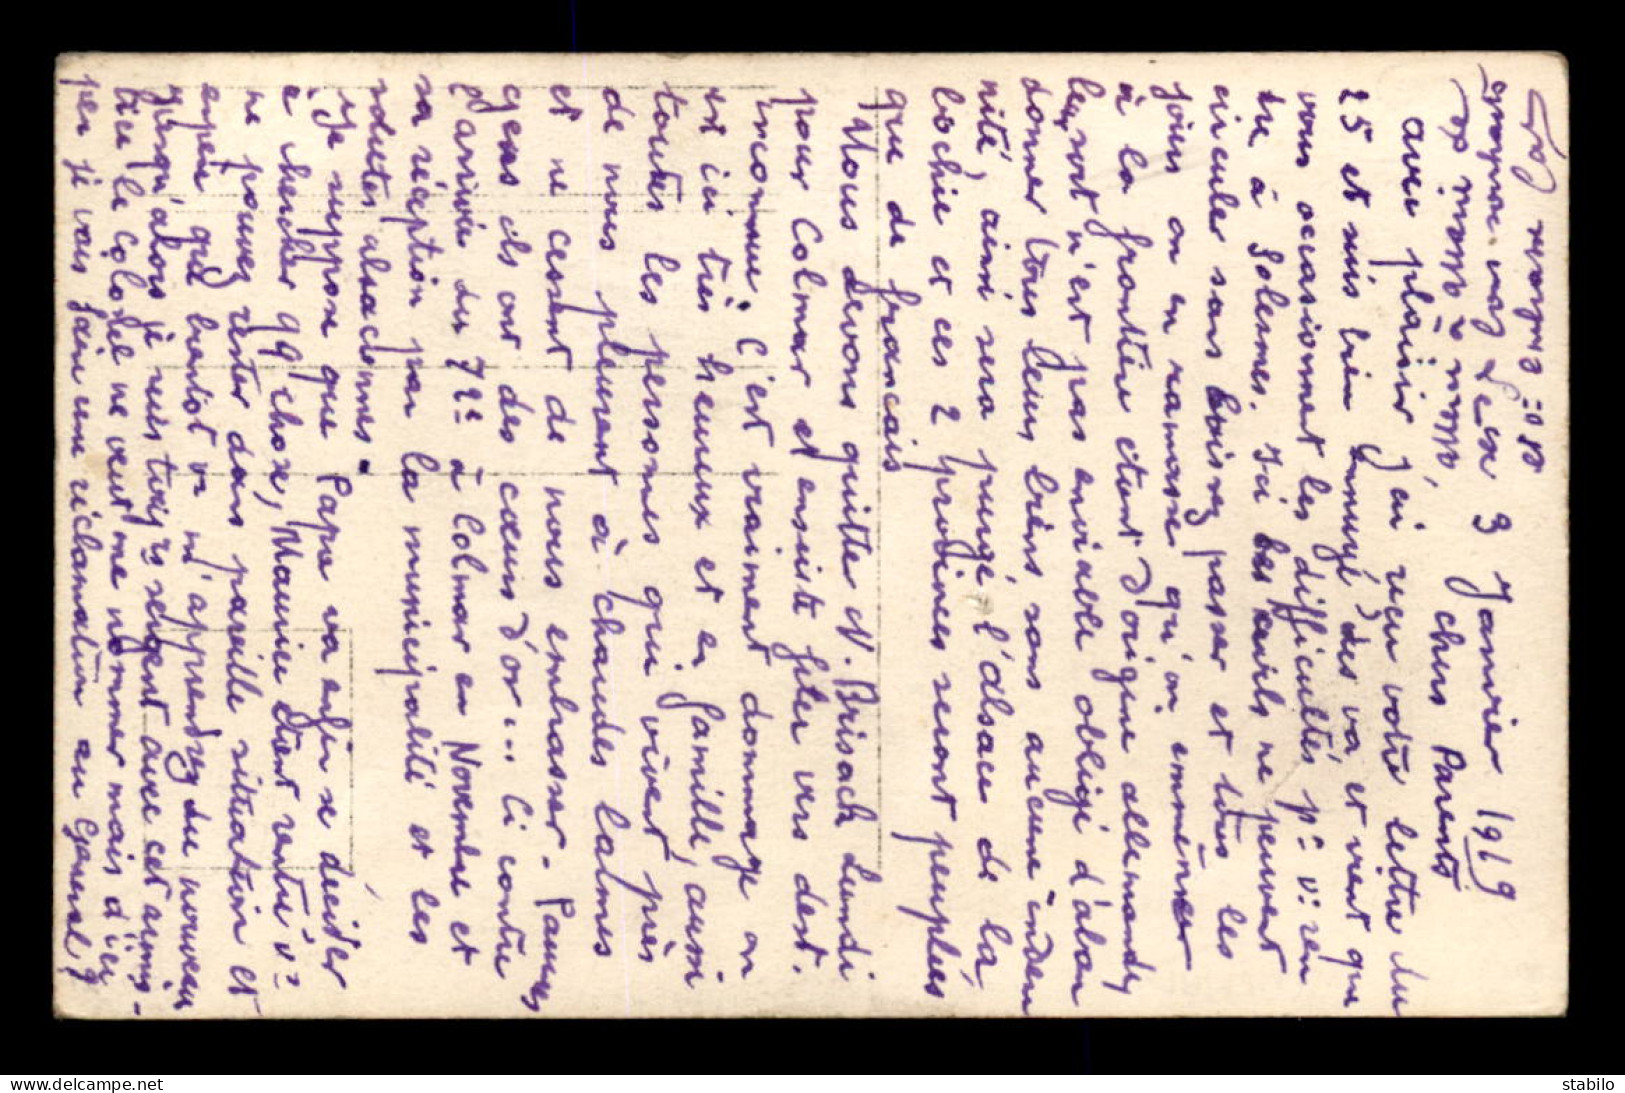 3 Janvier 1919
chers Parents
Avec plaisir j'ai reçu votre lettre du
25 et suis bien ennuyé des va et vient que
vous occasionnent les difficultés pr vs ren
dre à Solesmes. Ici les civils ne peuvent
circuler sans laissez passer et tous les
jours on en ramasse qu'on emmener
à la frontière étant d'origine allemande,
leur sort n'est pas enviable obligé d'aban
donner tous leurs biens sans aucune indem
nité, ainsi sera purgé l'Alsace de la
bochie et ces 2 provinces seront peuplées
que de français
Nous devons quitter N. Brisach Lundi
pour Colmar et ensuite filer vers dest.
inconnue. C'est vraiment dommage on
est ici très heureux et en famille, aussi
toutes les personnes qui vivent près
de nous pleurent à chaudes larmes
et ne cessent de nous embrasser. Pauvres
gens ils ont des cœurs d'or... Ci contre
l'arrivée du 72e à Colmar en Novembre et
sa réception par la municipalité et les
sociétés alsaciennes.
Je suppose que Papa va enfin se décider
à chercher qq chose, Maurice étant rentré vs
ne pouvez rester dans pareille situation et
espère que bientôt vs m'apprendrez du nouveau
jusqu'alors je suis toujrs sergent avec cet armis-
tice le Colonel ne veut me nommer mais d'ici
peu je vais faire une réclamation au Général ?
stabilo
www.delcampe.net